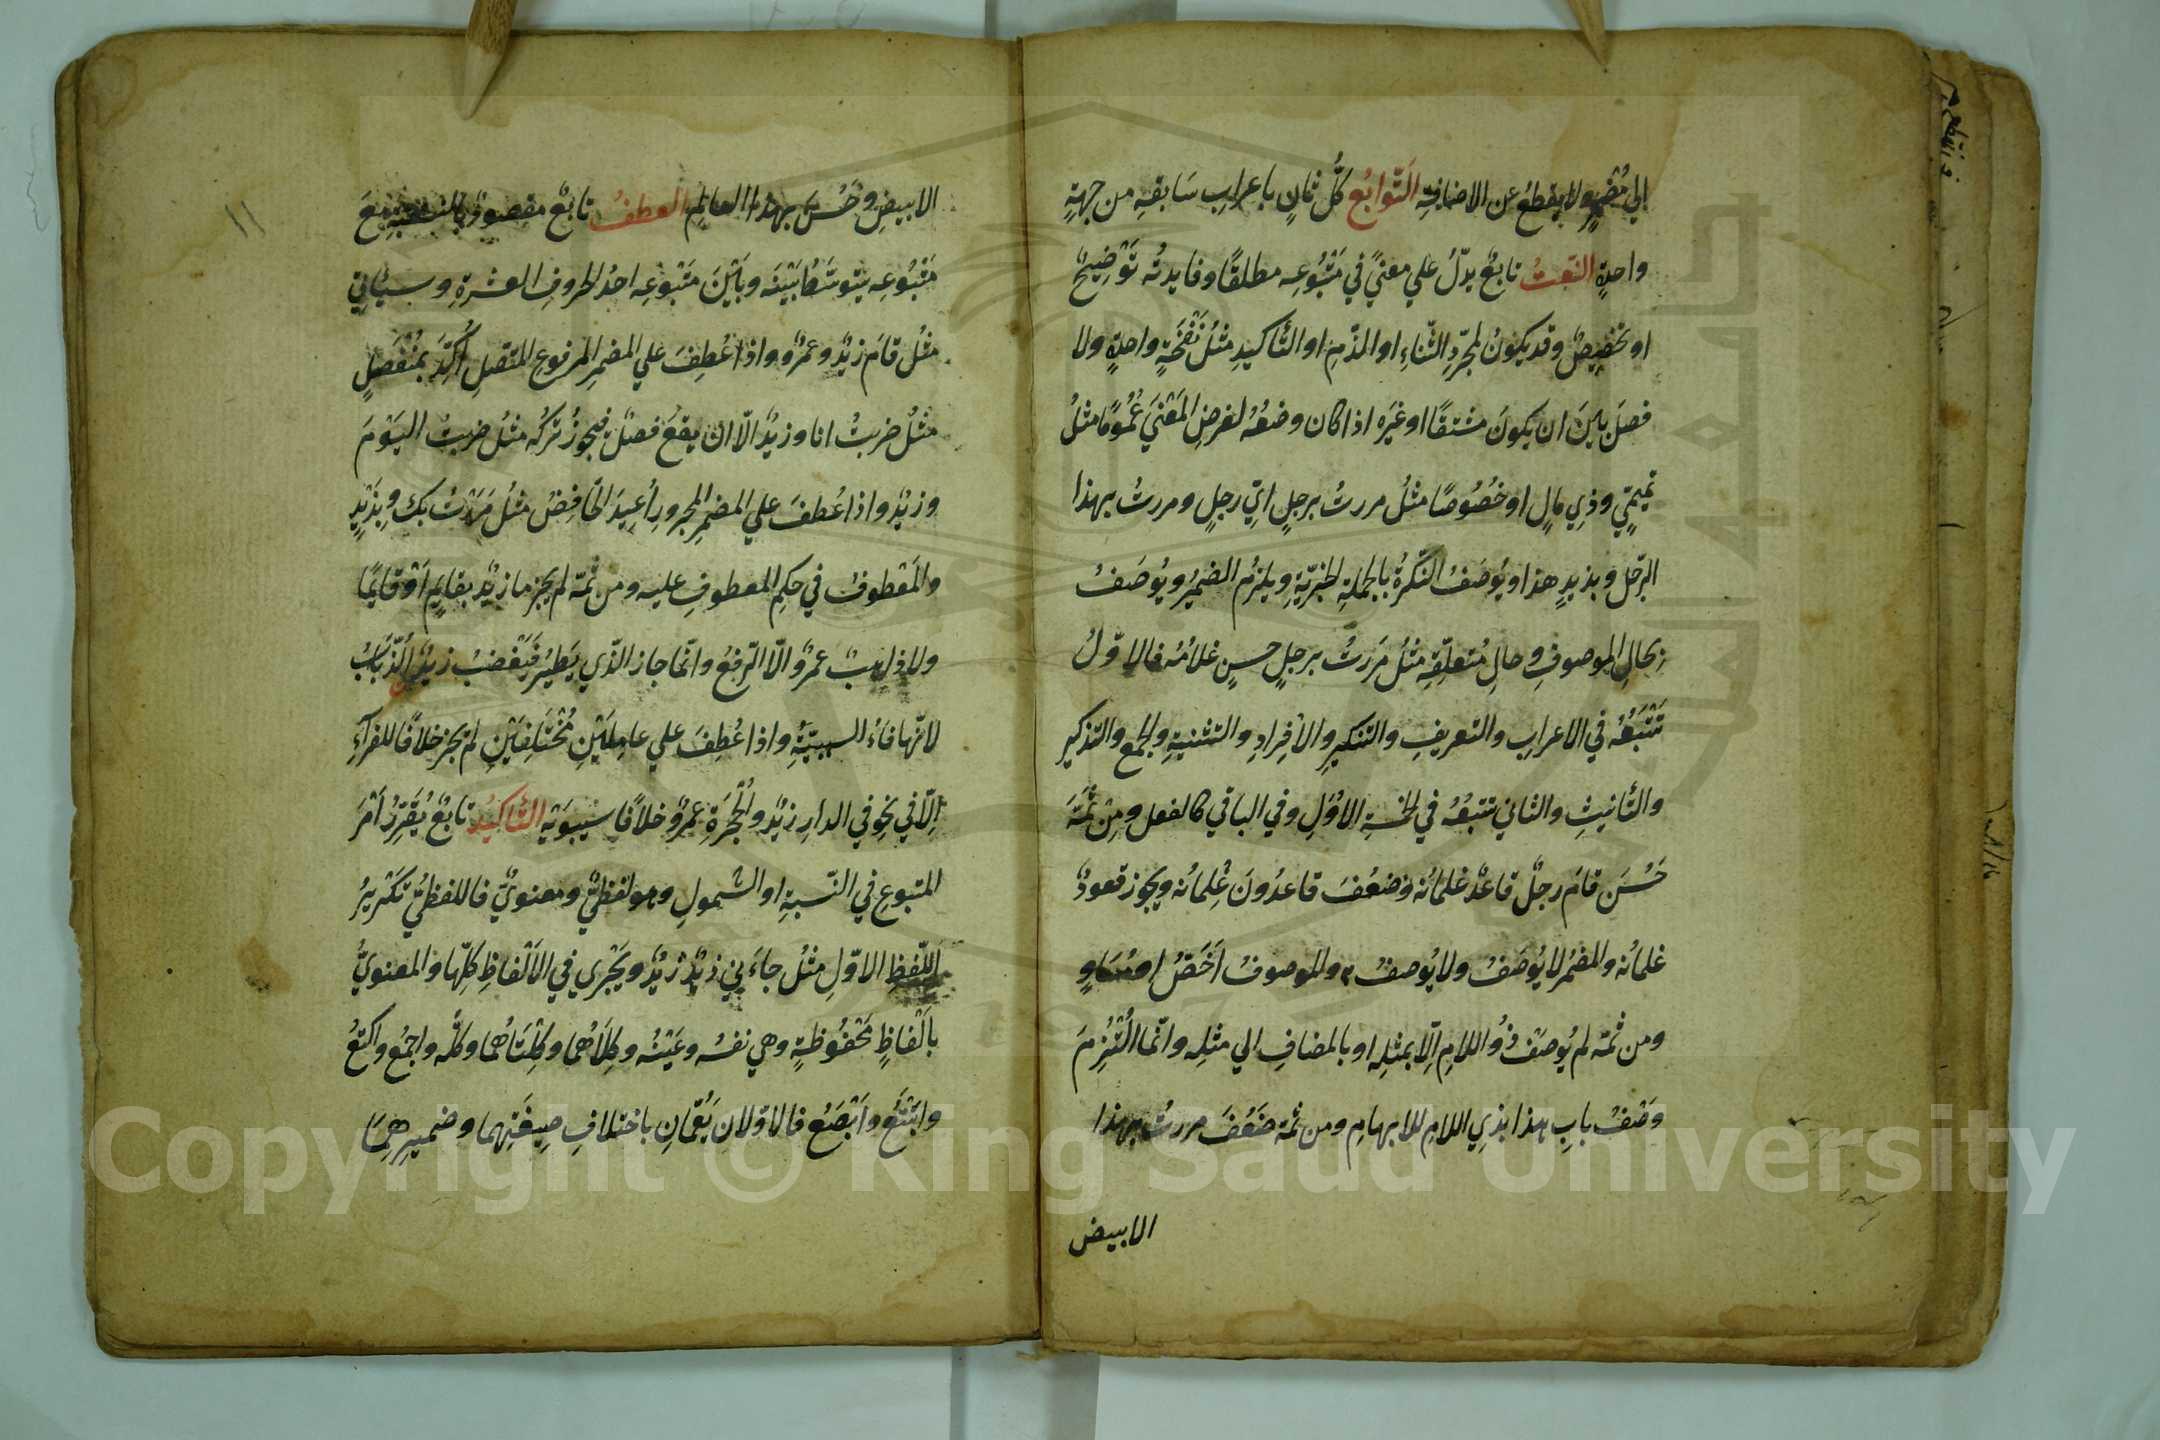 الي مُضمَرٍ ولا يقطعُ عن الاضافةِ التَّوابعُ كلُّ ثانٍ باعرابِ سَابقهِ من جهةٍ
واحدةٍ النّعتُ تابعٌ يدلّ علي معنيً في مَتْبُوعِه مطلقًا وفايدتُه تَوْضِيحٌ
او تخصِيصٌ وقد يكونُ لمجرّدِ الثّناءِ او الذّمِ او التّاكيدِ مثلُ نَفْخَةٍ واحدةٍ ولا
فصلَ بينَ ان يكونَ مشتقًا او غيَره اذا كان وضعُهُ لغرضِ المَعْنيَ عُمُومًا مثلُ
تميمّيٍ وذِي مالٍ او خصُوصًا مثلُ مررتُ برجلٍ ايّ رجلٍ ومررتُ بهذا
الرّجلِ وبزيدٍ هذا ويُوصَفُ النّكرةُ بالجملةِ الخبريّةِ ويلزمُ الضميرُ ويُوصَفُ
بحالِ الموصوفِ وحالِ مُتعلِّقِه مثلُ مَررتُ برجلٍ حسنٍ غلامُه فالاوّلُ
تَتْبَعُهُ في الاعرابِ والتعريفِ والتنكيرِ والافرادِ والتثنيةِ والجمعِ والتذكيرِ
والتّأنيثِ والثاني تتبعُهُ في الخمسةِ الاُوَلِ وفي الباقي كالفعل ومِنْ ثَمّةَ
حَسُنَ قامَ رجلٌ قاعدٌ غلمانُه وضعُفَ قاعدُونَ غِلمانُه ويجوز قعودٌ
غلمانُه والمضمرُ لا يُوصَفُ ولا يُوصفُ به والموصوفُ اَخَصّ او مُسَاوٍ
ومن ثمّه لم يُوصَفْ ذُو اللامِ اِلّا بمثلِه او بالمضافِ الي مثلِه وانّما الْتُزِمَ
وَصْفُ بابِ هذا بذي اللامِ للابهامِ ومن ثمّه ضَعُفَ مررتُ بهذا
الابيض
الابيضِ وحَسُنَ بهذا العالمِ العطفُ تابعٌ مقصودٌ بالنسبةِ معَ
مَتْبُوعِه يتوسّطُ بَيْنَه وبَيْنَ مَتْبوعِه احدُ الحروفِ العشرةِ وسيأتي
مثلُ قامَ زيدٌ وعمرٌو واذا عُطِفَ علي المضمرِ المرفوعِ المتّصلِ اُكِّدَ بمُنْفصَلٍ
مثلُ ضربتُ انا وزيدٌ الّا ان يقعَ فصلٌ فيجوزُ تركُه مثلُ ضربتُ اليَوْمَ
وزيدٌ واذا عُطفَ علي المضمرِ المجرورِ اُعِيدَ الخافِضُ مثلُ مَرَرْتُ بك وبِزَيْدٍ
والمَعْطوفُ في حكمِ المعطوفِ عليه ومن ثمّه لم يجز ما زيدٌ بقايمٍ اَوْ قايمًا
ولا ذاهبٌ عمرٌو الّا الرّفعُ وانّما جاز الّذي يَطيرُ فيَغْضبُ زيدٌ الذّبَابُ
لانّها فاءُ السببيّةِ واذا عُطِفَ علي عامِليَنِ مُخْتَلِفَيْنِ لم يجز خلافًا للفرآءِ
اِلّا في نحوِ في الدارِ زيدٌ والحُجْرَةِ عمرٌو خلافًا سيبَوَيْهِ التّأكيدُ تابعٌ يُقَرِّرُ اَمْرَ
المتبوعِ في النّسبةِ او الشمولِ وهو لفظيٌّ ومعنويٌّ فاللفظيُّ تَكْرِيرُ
اللّفظِ الاوّلِ مثلُ جاءَني زيدٌ زيدٌ ويَجْري في الاَلفاظِ كلِّها والمعنويُّ
بالْفاظٍ مَحْفُوظةٍ وهي نفسُه وعَيْنُه وكِلاهُما وكِلْتَاهُما وكلُّه واجمعُ واكتعُ
وابْتَعُ واَبْصَعُ فالاوّلانِ يَعُمّانِ باختلافِ صِيغَتِهما وضميرِهِمَا
١١
Copyright © King Saud University